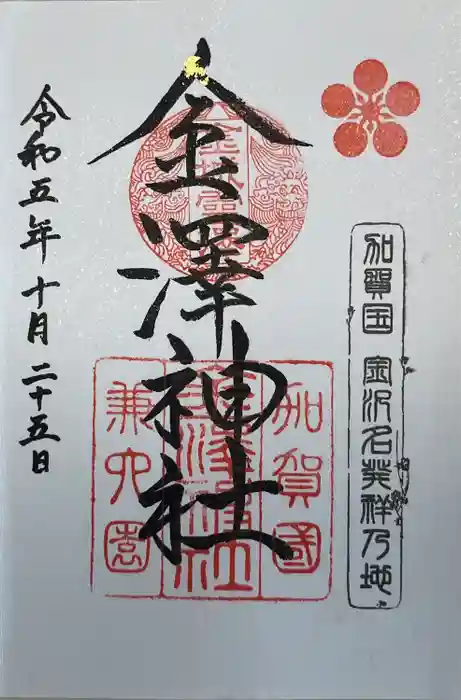 加賀国 金沢名発祥乃地
金澤神社
加賀國
金澤神社
兼六園
令和五年十月二十五日